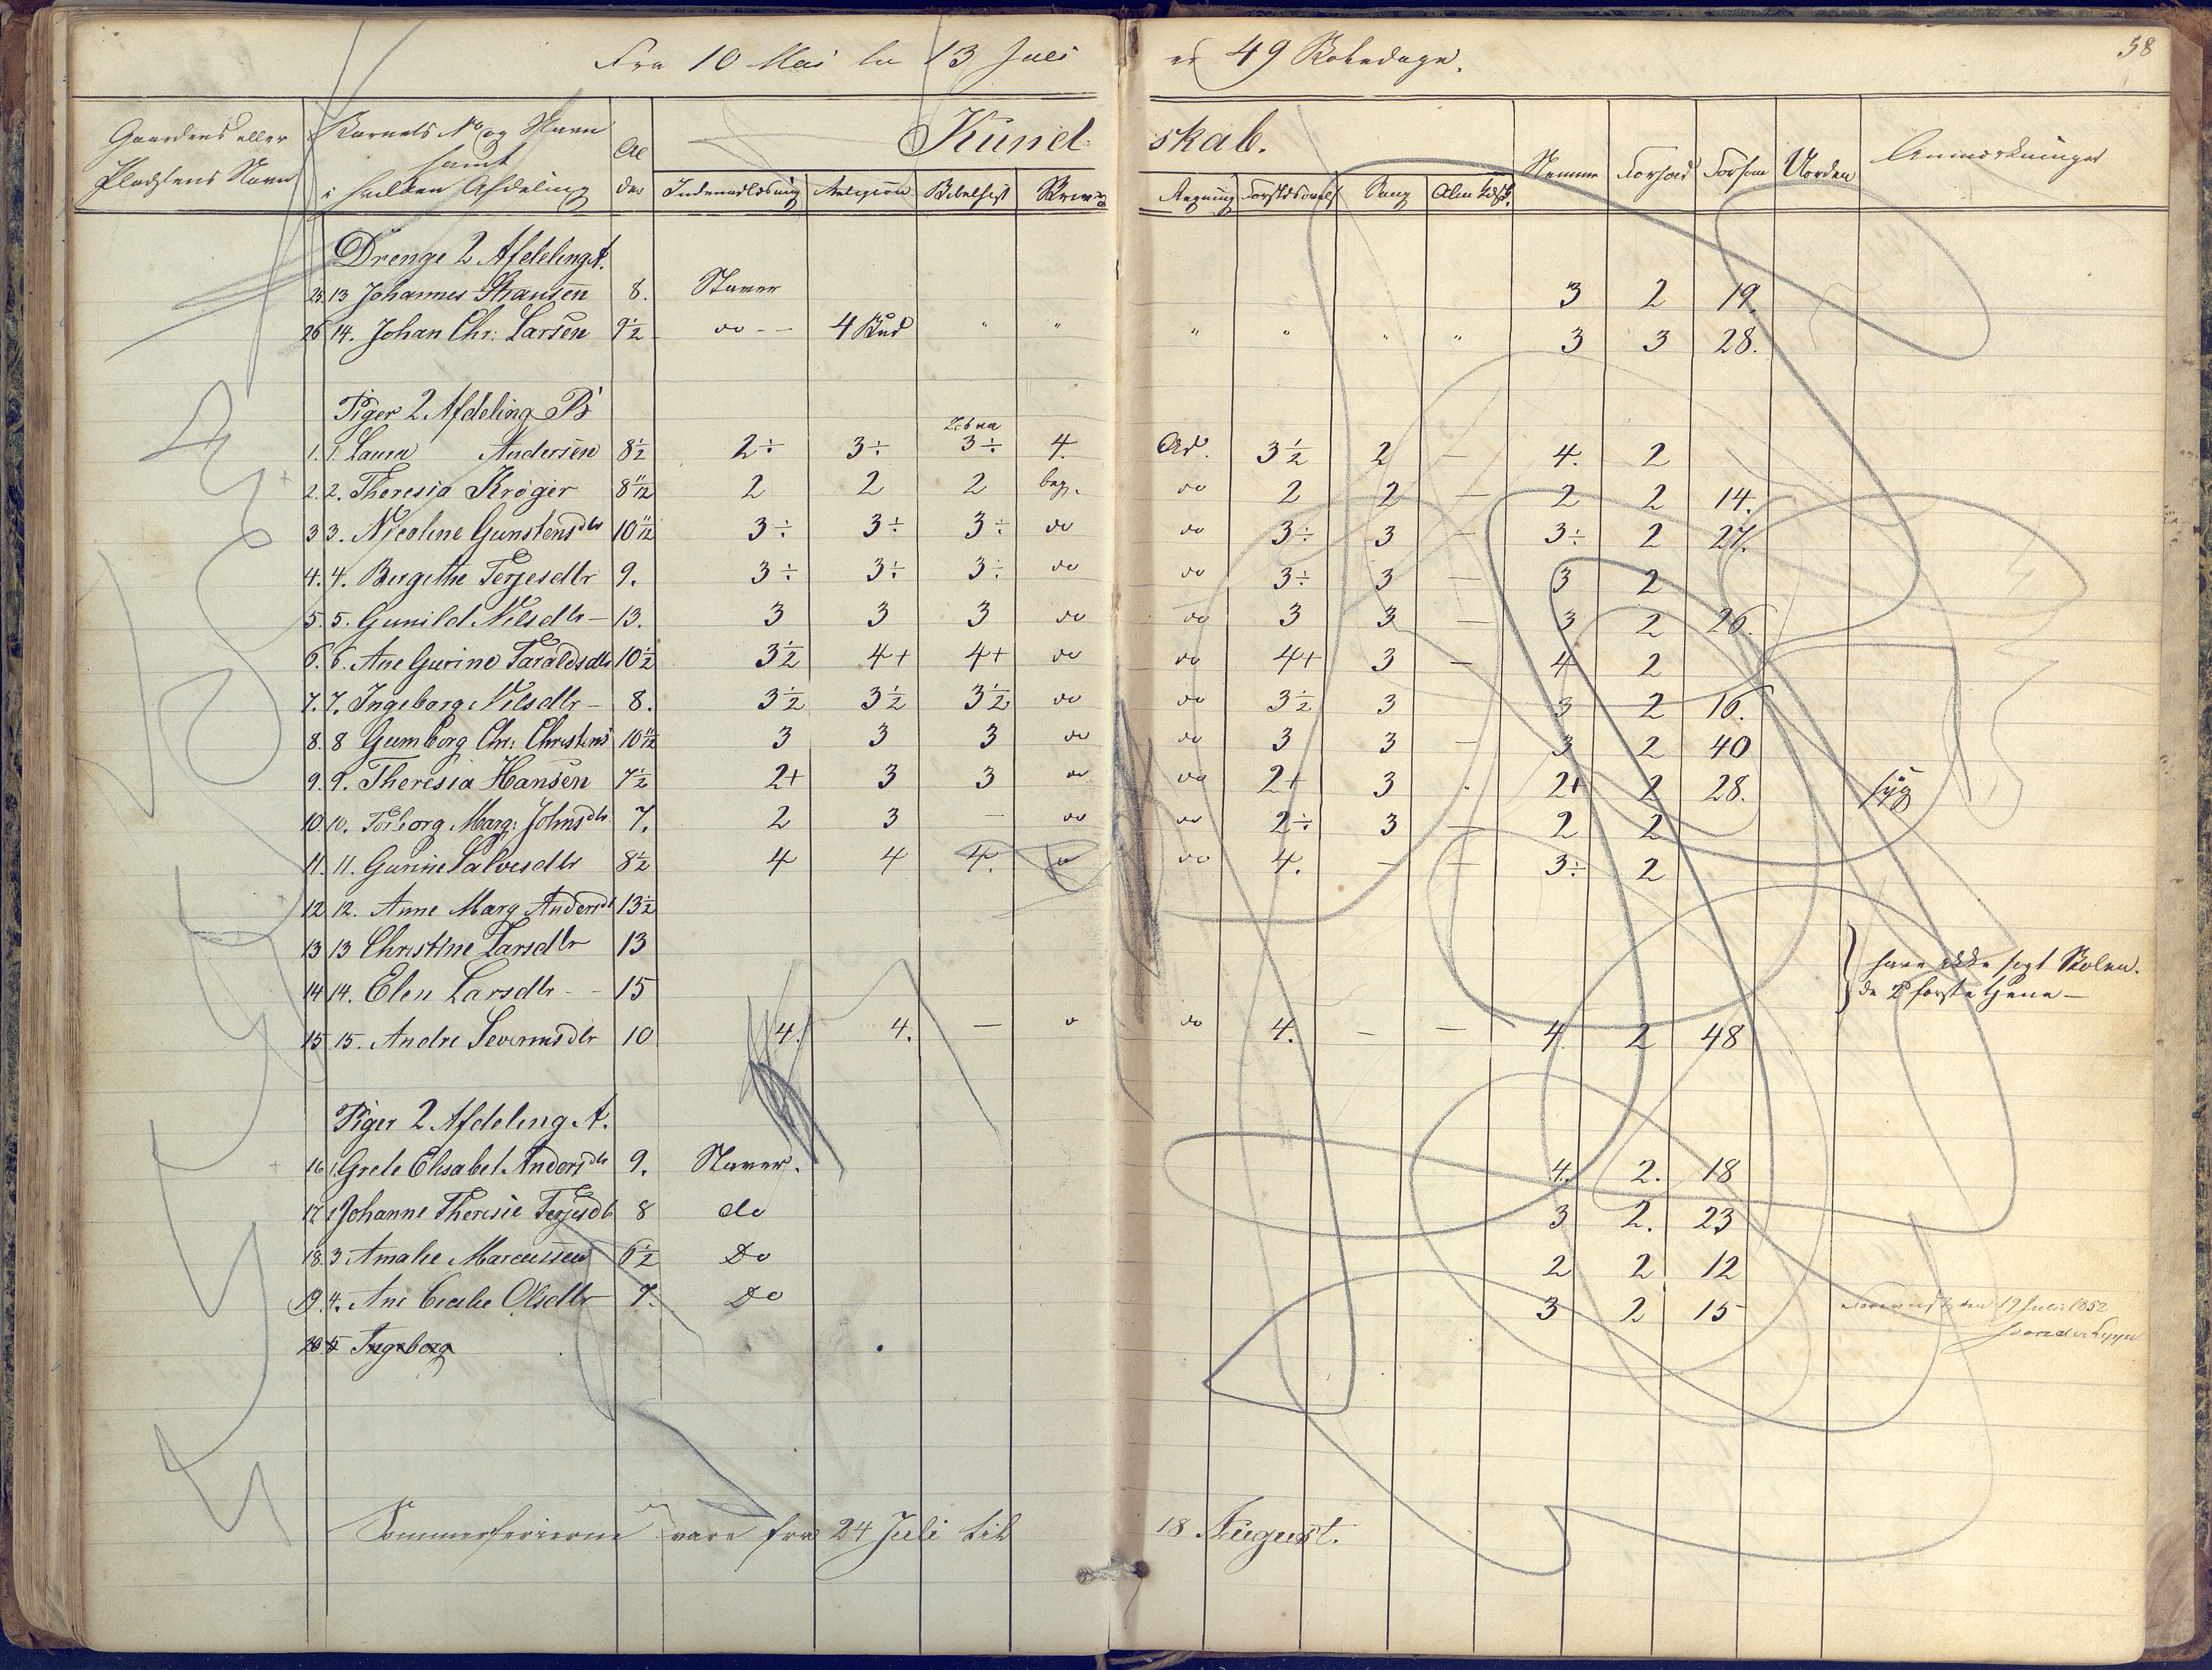 58
Fra 10 Mai til 13 Juli er 49 Skoledage.
Gaardens eller Pladsens Navn
Barnets No og Navn samt i hvilken Afdeling
Alder
Kundskab.
Indenadlæsning Religion Bibelhist Skrivning Regning Forstdsøvels Sang Nemme Forhold Forsøm Uorden Anmærkninger
Drenge 2 Afdeling A.
25. 13 Johannes Hansen 8. Staver 3 2 19.
26 14. Johan Chr: Larsen 9½ do -- 4 Bud " " " " " " 3 3 28.
Piger 2 Afdeling B
1. 1. Laura Andersen 8½ 2÷ 3÷ 3÷ 4. Ad. 3½ 2 — 4. 2
2. 2. Theresia Krøger 8 11/12 2 2 2 beg. do 2 2 — 2 2 14.
3 3. Nicoline Gunstensdtr 10 11/12 3÷ 3÷ 3÷ do do 3÷ 3 — 3÷ 2 27.
4. 4. Birgithe Terjesdtr 9. 3÷ 3÷ 3÷ do do 3÷ 3 — 3 2
5. 5. Gunild Nilsdtr — 13. 3 3 3 do do 3 3 — 3 2 26.
6. 6. Ane Gurine Taraldsdtr 10½ 3½ 4+ 4+ do do 4+ 3 — 4 2
7. 7. Ingeborg Nilsdtr — 8. 3½ 3½ 3½ do do 3½ 3 3 2 16.
8. 8 Gumborg Chr: Christens 10 11/12 3 3 3 do do 3 3 — 3 2 40
9. 9. Theresia Hansen 7½ 2+ 3 3 do do 2+ 3 . 2+ 2 28. syg
10. 10. Torborg Marg: Johnsdtr 7. 2 3 — do do 2÷ 3 — 2 2
11. 11. Gurine Salvesdtr 8½ 4 4 4. do do 4. — — 3÷ 2
12 12. Anne Marg Andersdt 13½
13 13 Christine Larsdtr 13
have ikke søgt Skolen.
14 14. Elen Larsdtr - - 15
de 2 første tjene —
15 15. Andre Severinsdtr 10 4. 4. — do do 4. — — 4. 2 48
Piger 2 Afdeling A.
16 1. Grete Elisabet Andersdtr 9. Staver. 4. 2. 18
17 2 Johanne Theresie Terjesdt 8 do 3 2. 23
18. 3 Amalie Marcussen 6½ Do 2 2 12
19. 4. Ane Cecilie Olsdtr 7. Do 3 2 15
19 Juli 1852
20. 5 Ingeborg
Sommerferierne vare fra 24 Juli til 18 August.